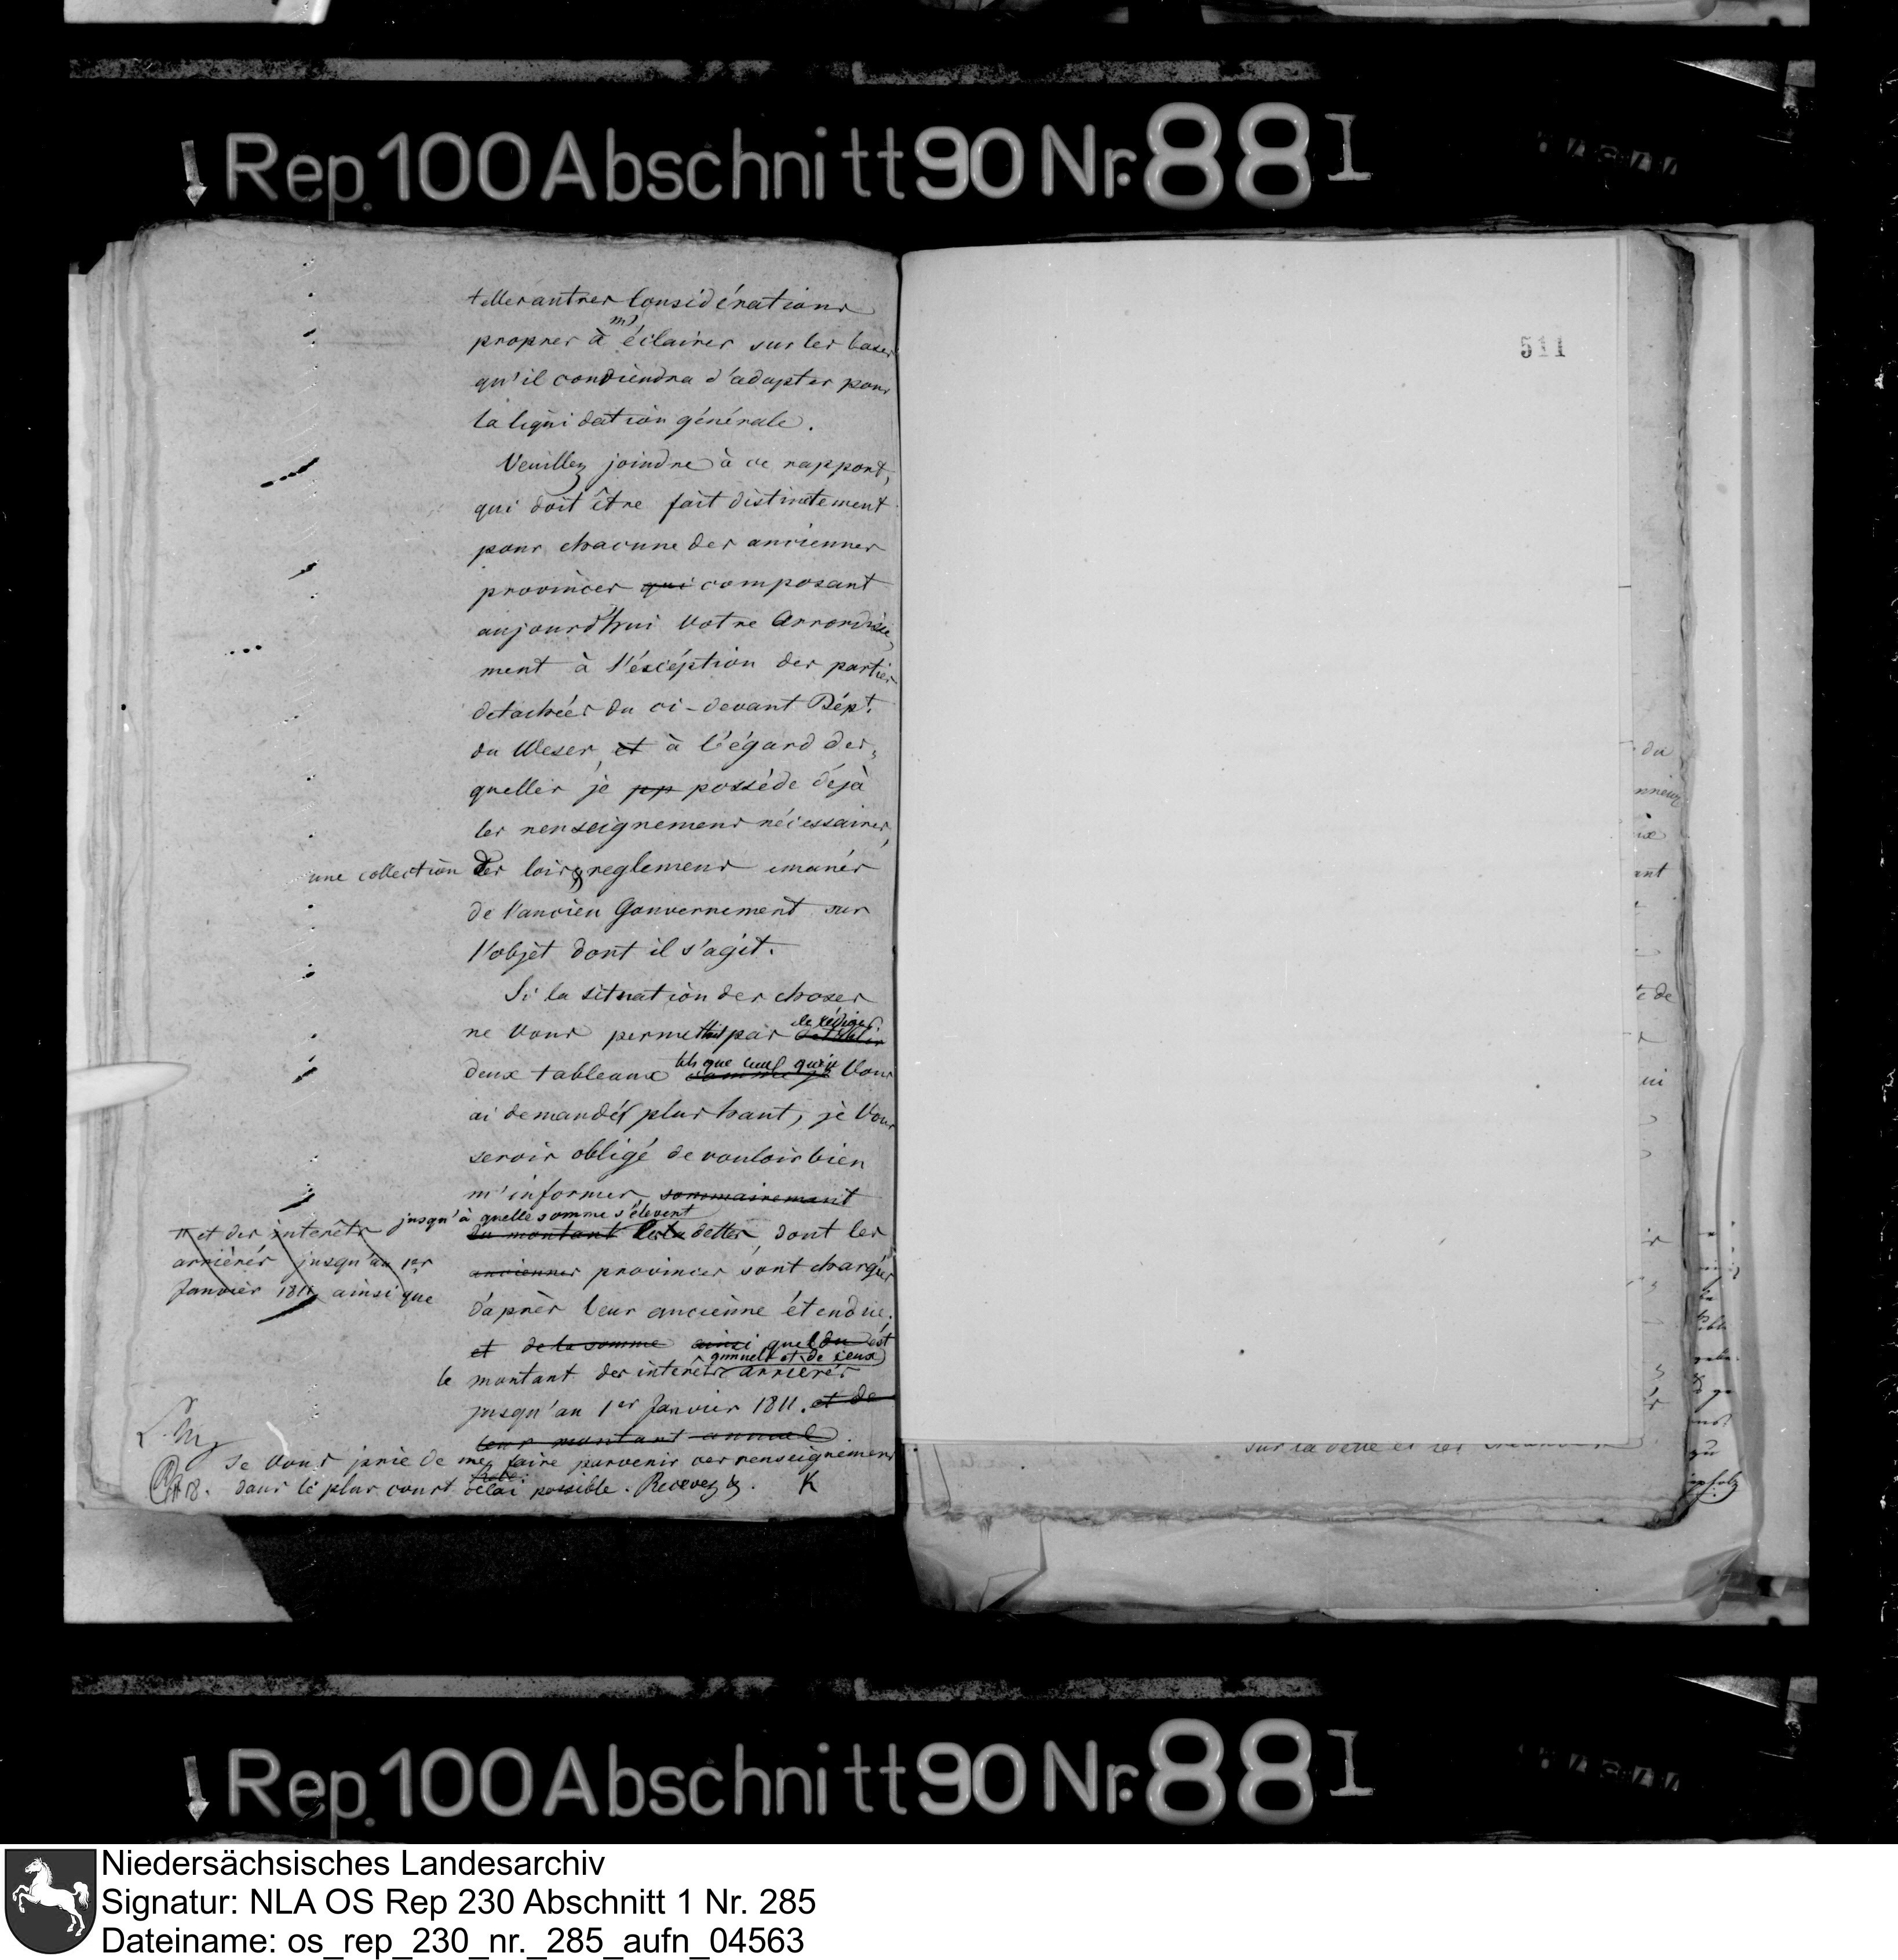 Rep. 100 Abschnitt 90 Nr. 88 I
telles autres Considérations
propres à m' éclairer sur les bases
qu'il conviendra d'adopter pour
la liquidation générale.
Veuillez joindre à ce rapport,
qui doit être fait distinctement
pour chacune des anciennes
provinces qui composant
aujourd'hui Votre Arrondisse
ment à l'éxcéption des parties
detachées du ci-devant Dépt.
du Weser, et à l'égard des
quelles je pp posséde déjà
les renseignemens nécessaires,
une collection des lois & reglemens emanés
de l'ancien Gouvernement sur
l'objèt dont il s'agit.
Si la situation des choses
de rédiger
ne Vous permettait pas
tels que ceux que je
deux tableaux comme je Vous
ai demandés plus haut, je Vous
serois obligé de vouloir bien
m'informer, sommairement
jusqu'à quelle somme s'élevent
du montant les dettes, dont les
et des interêts
arriérés jusqu'au 1er
Janvier 1811 ainsi que
anciennes provinces sont chargées
d'après leur anciènne étendue,
et de la somme ainsi quel du est
annuels et de ceux
le montant des interêts arrierés
jusqu'au 1er Janvier 1811. et de
leur montant annuel.
Je Vous prie de me faire parvenir ces renseignemens
dans le plus court délai possible. Recevez &. K
511
du
ant
ui
sur la dette et les
Rep. 100 Abschnitt 90 Nr. 88 I
Niedersächsisches Landesarchiv
Signatur: NLA OS Rep 230 Abschnitt 1 Nr. 285
Dateiname: os_rep_230_nr._285_aufn_04563